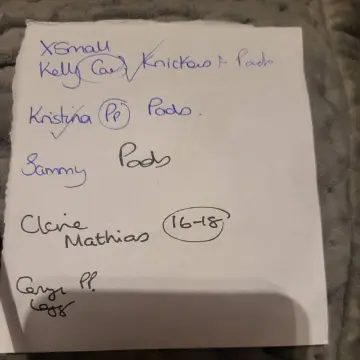 XSmall
Kelly Car Knickers + Pads
Kristina PP Pads.
Sammy Pads
Claire
Mathias 16-18
PP.